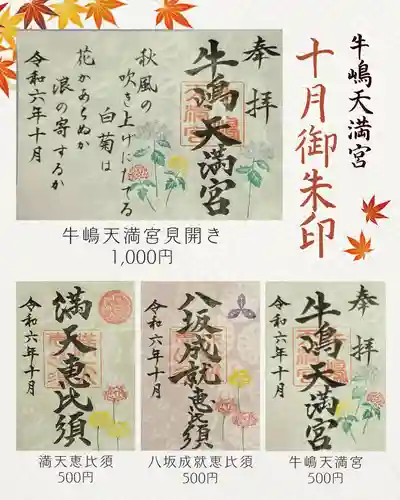 牛嶋天満宮
十月御朱印
奉拝
牛嶋天満宮
秋風の
吹き上げにたてる
白菊は
花かあらぬか
浪の寄するか
令和六年十月
牛嶋天満宮見開き
1,000円
満天恵比須
令和六年十月
満天恵比須
500円
八坂成就恵比須
令和六年十月
八坂成就恵比須
500円
奉拝
牛嶋天満宮
令和六年十月
牛嶋天満宮
500円